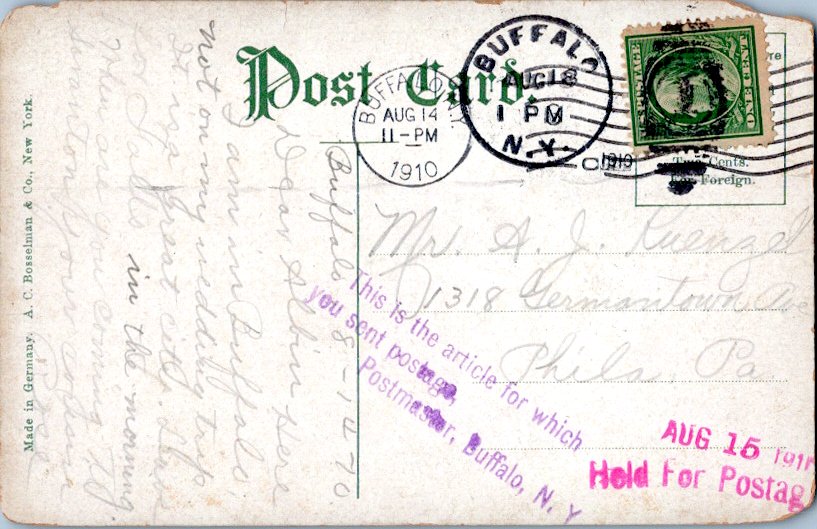 Post Card.
BUFFALO
AUG 14
11-PM
1910
BUFFALO
AUG 18
1 PM
N.Y.
1910
POSTAGE
ONE CENT
Two Cents.
For Foreign.
Mr. A. J. Kuenzel
1318 Germantown Ave
Phila Pa.
This is the article for which
you sent postage,
Postmaster, Buffalo, N. Y
AUG 15 191
Held For Postag
Buffalo 8-14-10
Dear Albin here
I am in Buffalo,
not on my wedding trip
It is a great city. I leave
to Falls in the morning.
When are you coming
Made in Germany. A. C. Bosselman & Co., New York.